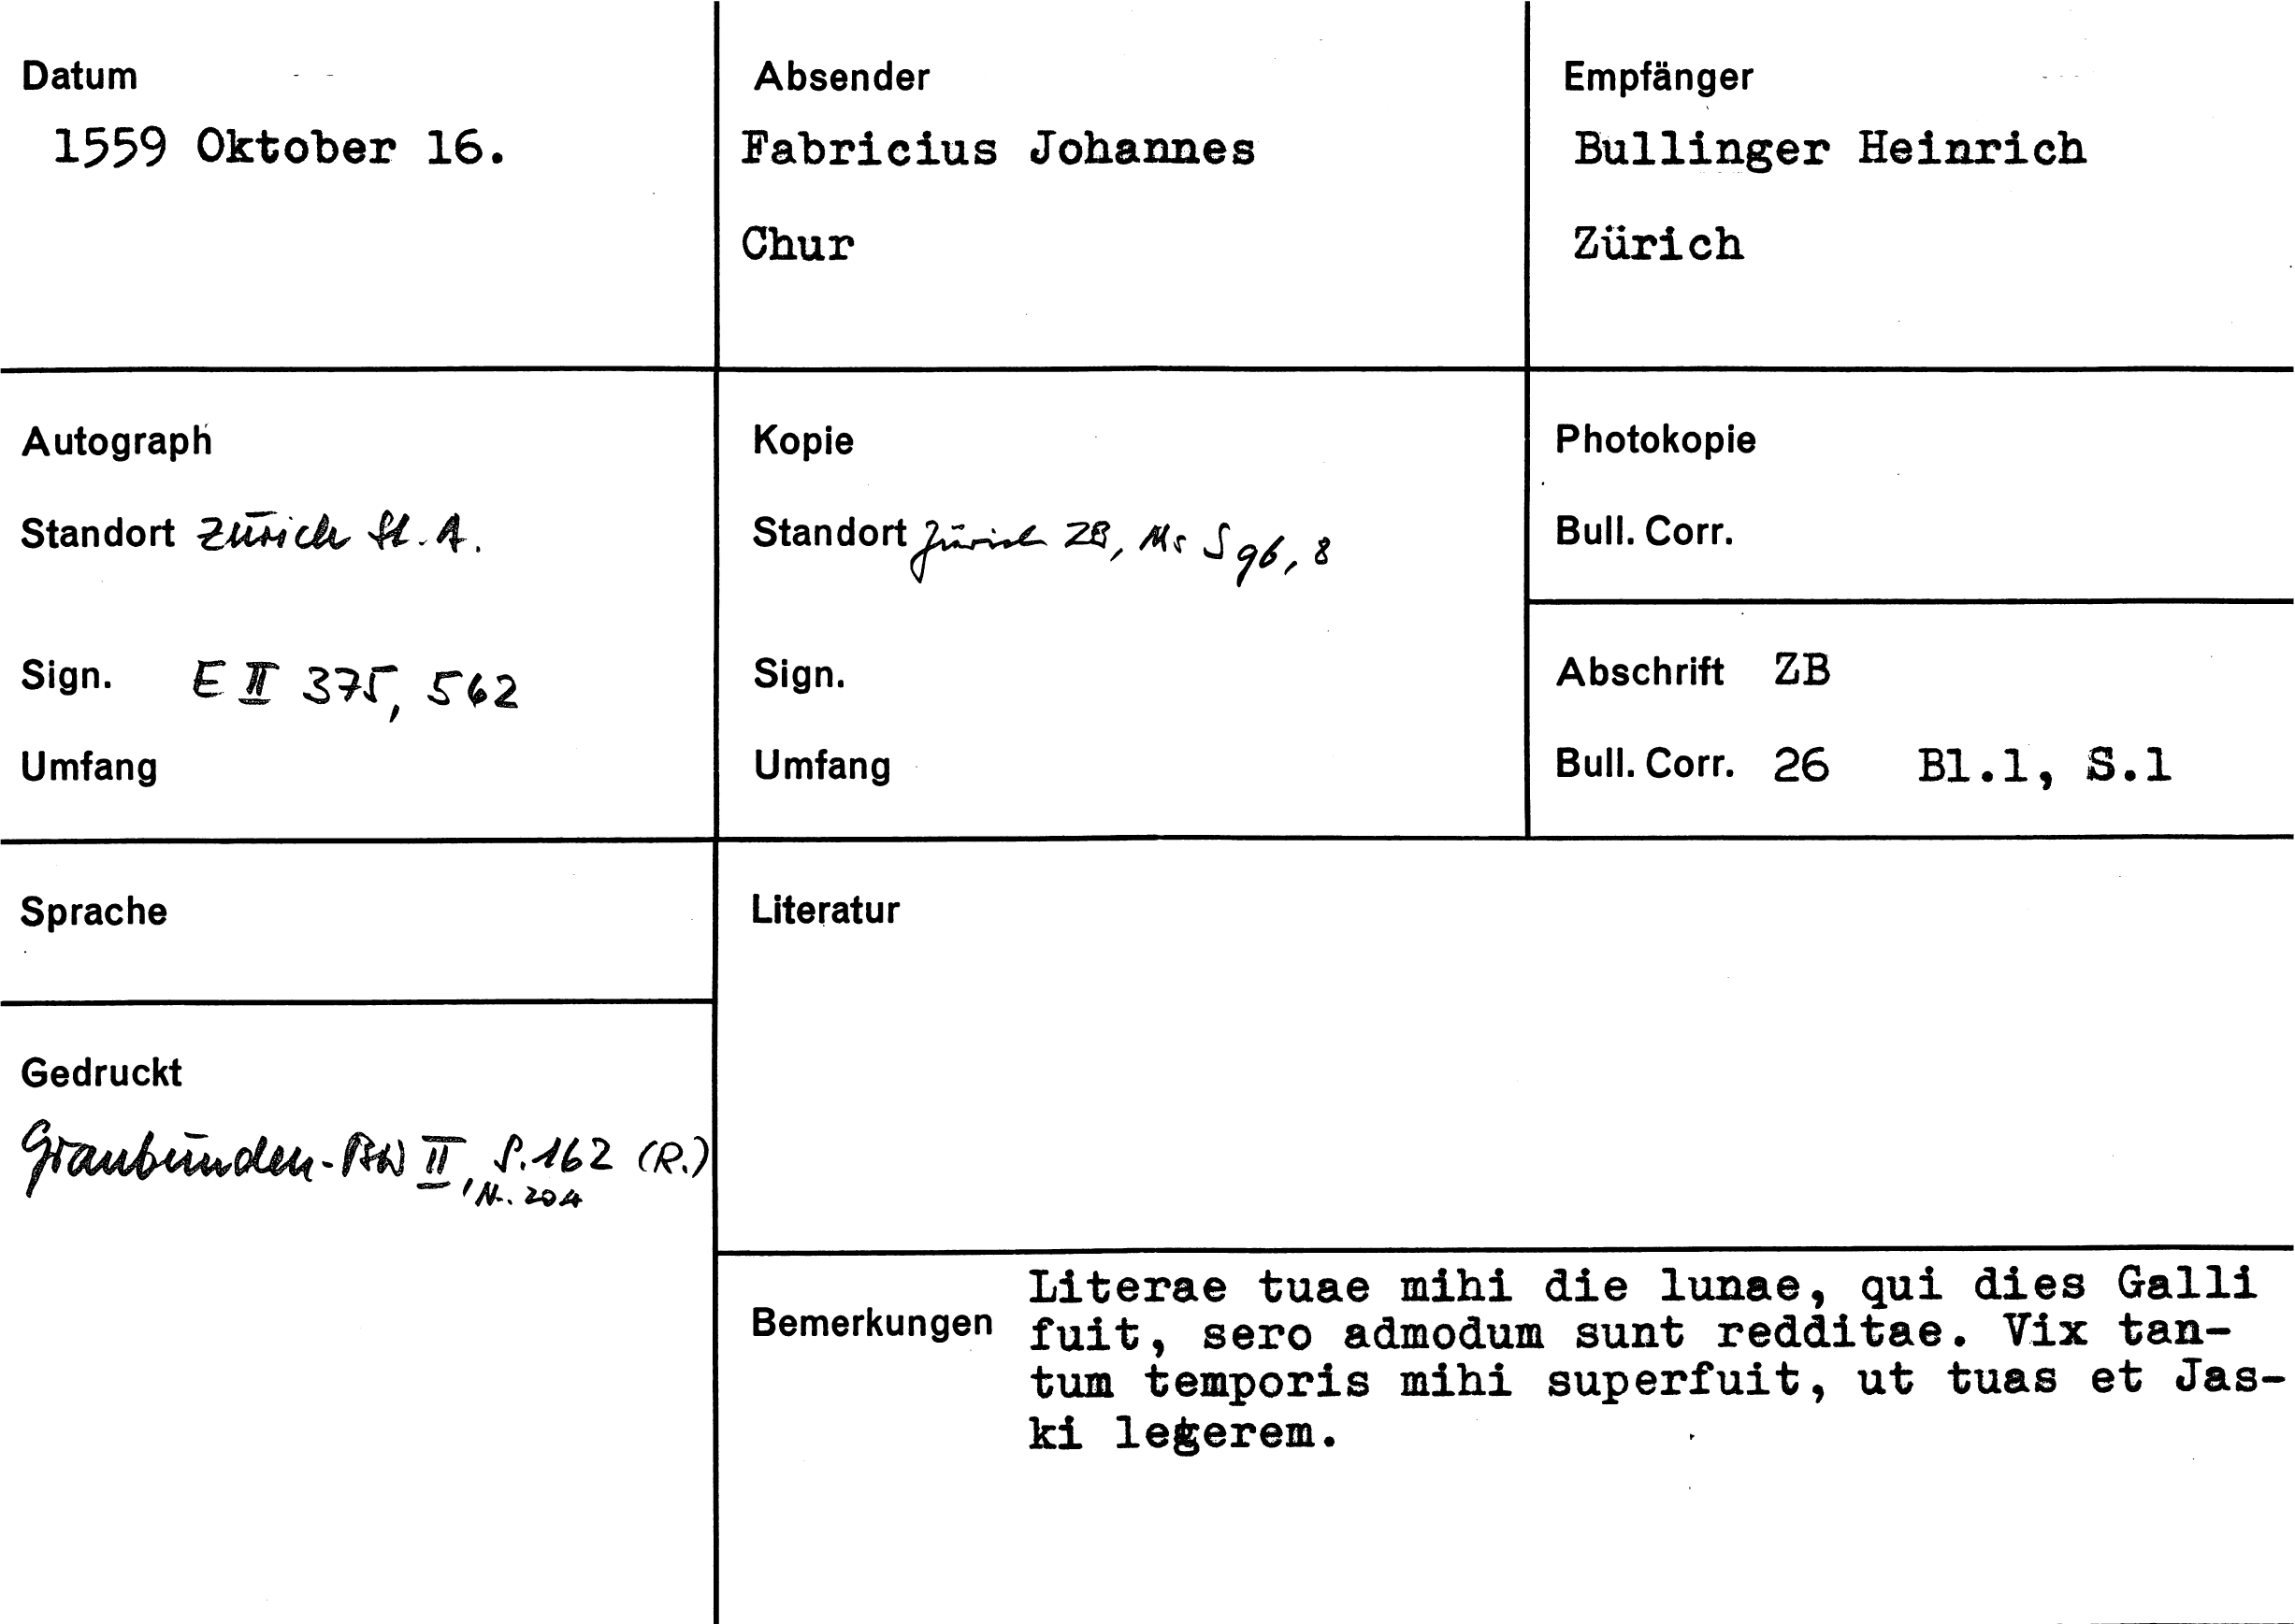 Datum
1559 Oktober 16.
Absender
Fabricius Johannes
Chur
Empfänger
Bullinger Heinrich
Zürich
Autograph
Standort Zürich St. A.
Sign. E II 375, 562
Umfang
Kopie
Standort Zürich ZB, Ms S 96, 8
Sign.
Umfang
Photokopie
Bull. Corr.
Abschrift ZB
Bull. Corr. 26 Bl.1, S.1
Sprache
Gedruckt
Graubünden-BW II, S.162 (R.)
N. 204
Literatur
Bemerkungen
Literae tuae mihi die lunae, qui dies Galli
fuit, sero admodum sunt redditae. Vix tan-
tum temporis mihi superfuit, ut tuas et Jas-
ki legerem.